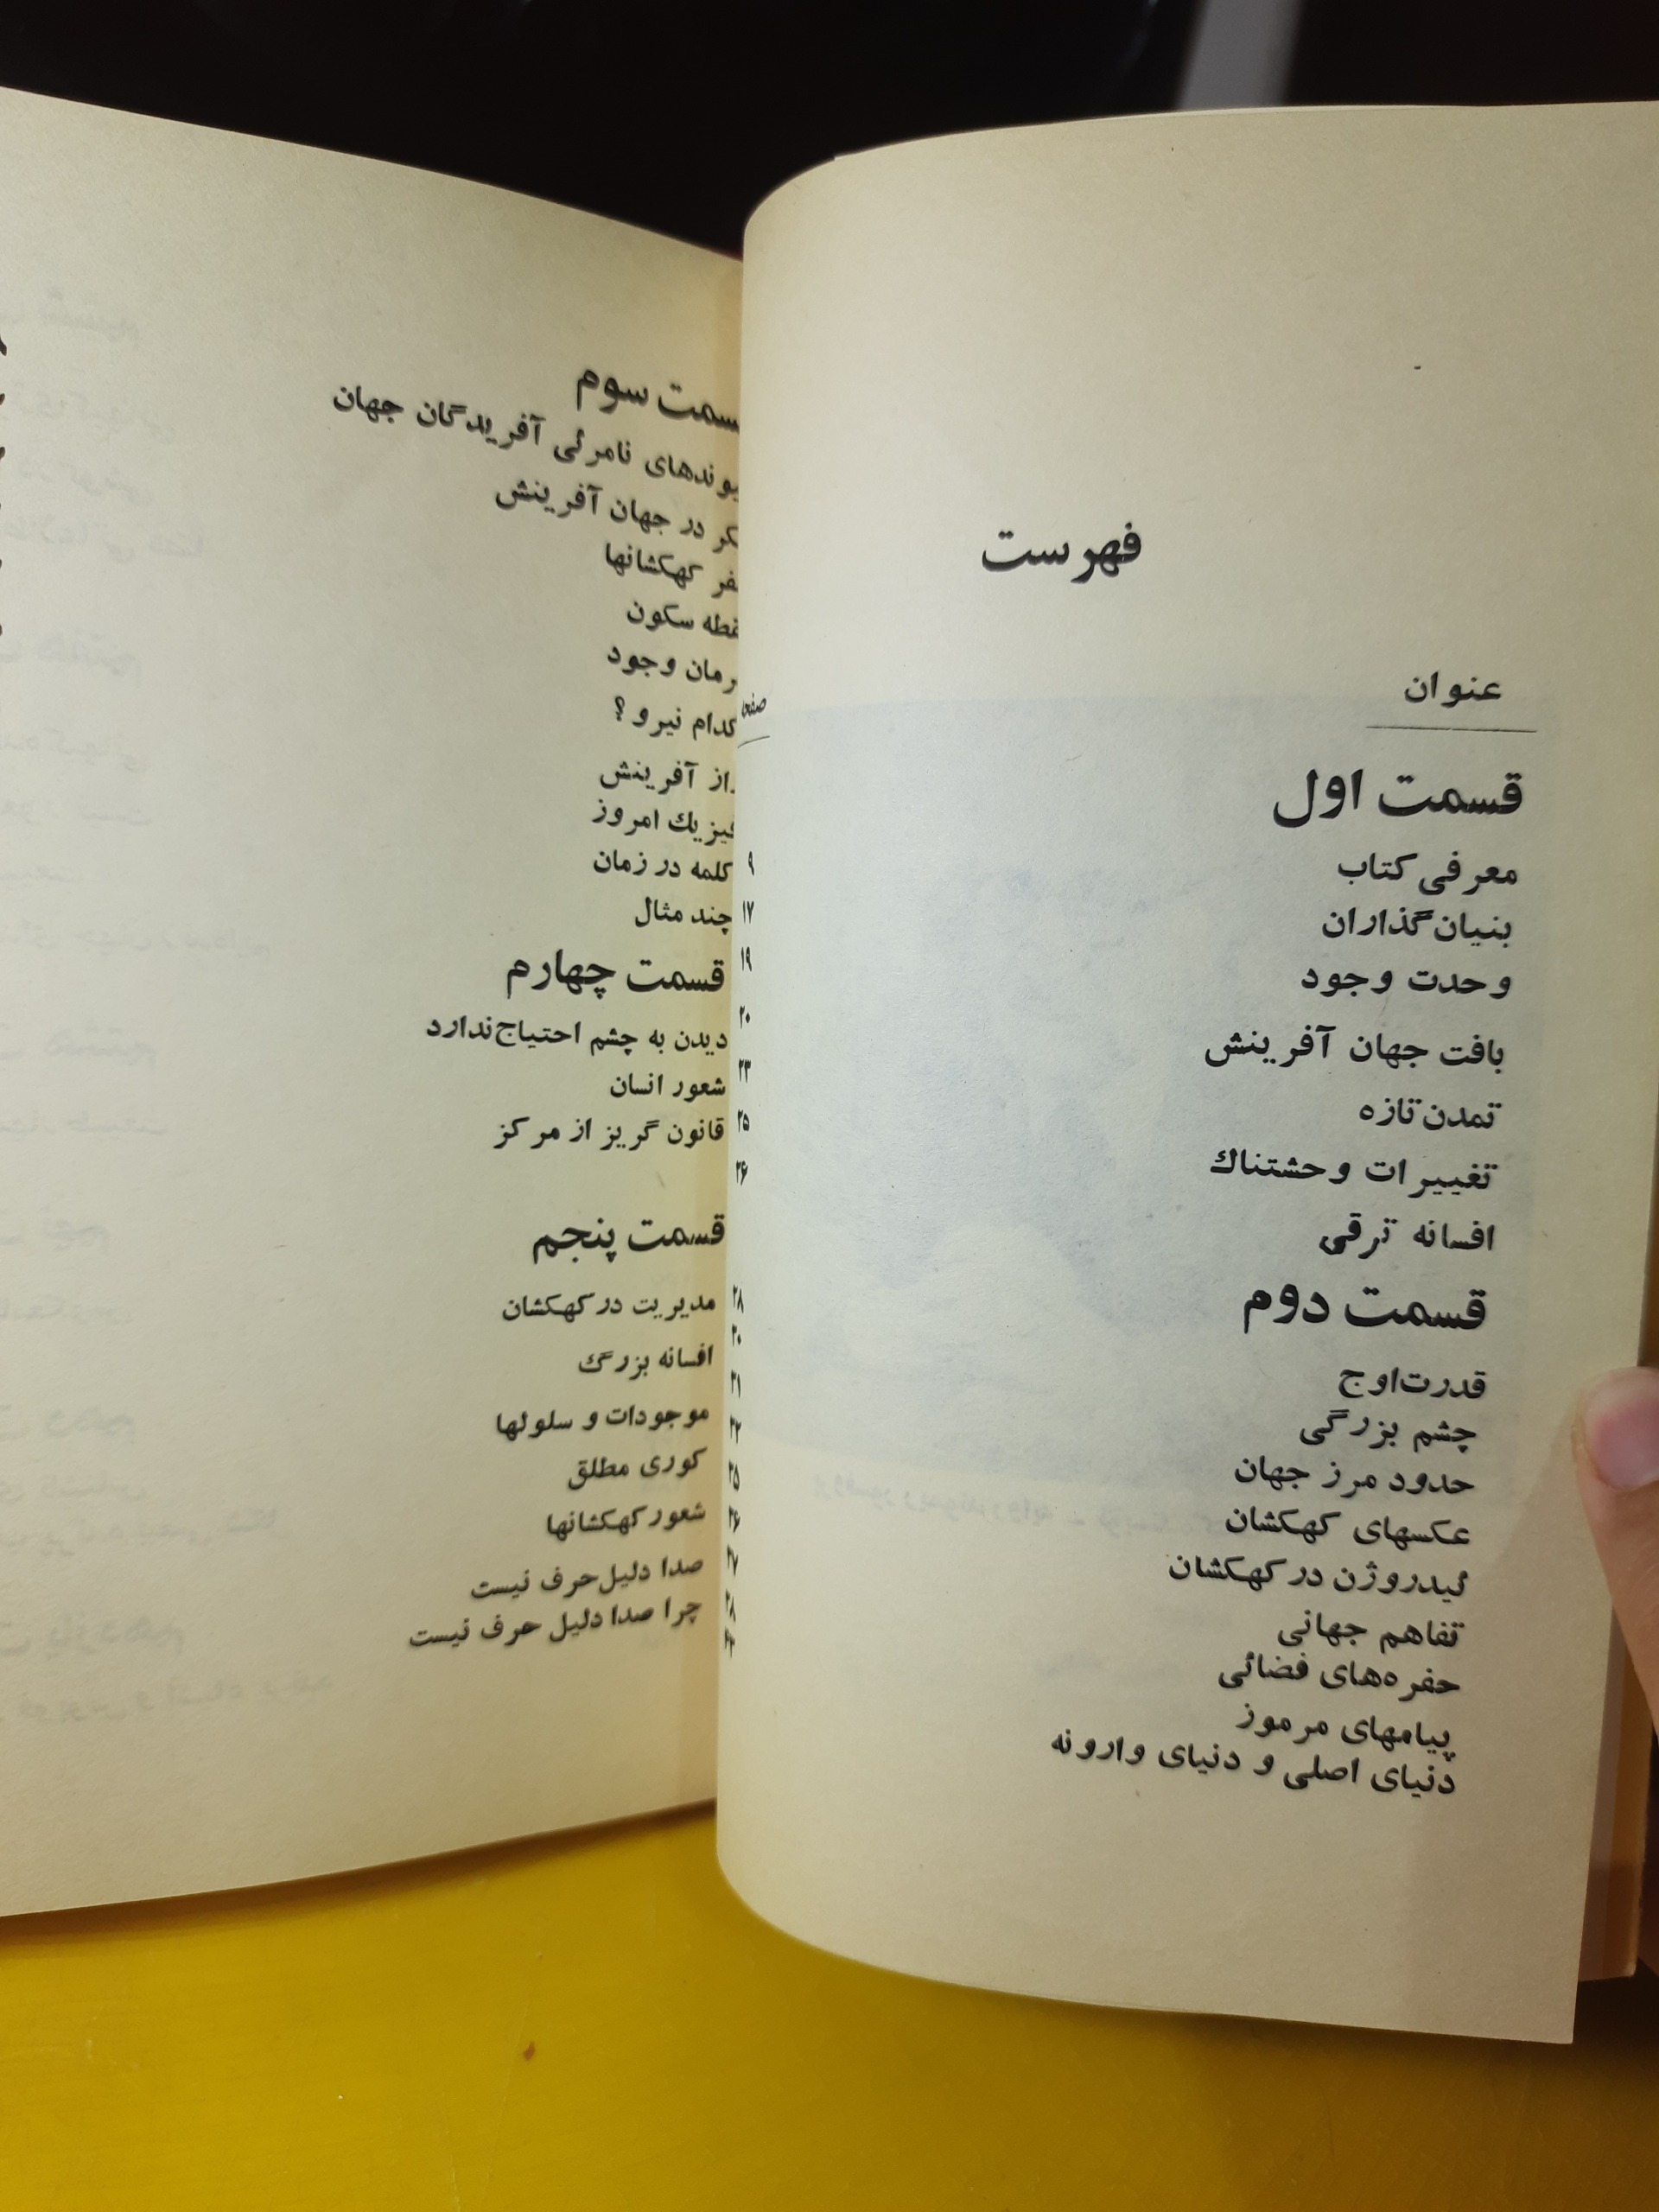 فهرست
عنوان
صفحه
قسمت اول
معرفی کتاب ۹
بنیان‌گذاران ۱۷
وحدت وجود ۱۹
بافت جهان آفرینش ۲۰
تمدن تازه ۲۳
تغییرات وحشتناك ۲۵
افسانه ترقی ۲۶
قسمت دوم
قدرت اوج ۲۸
چشم بزرگی
حدود مرز جهان
عکسهای کهکشان
ئیدروژن در کهکشان
تفاهم جهانی
حفره‌های فضائی
پیامهای مرموز
دنیای اصلی و دنیای وارونه
سمت سوم
یوندهای نامرئی آفریدگان جهان
کر در جهان آفرینش
فر کهکشانها
قطه سکون
رمان وجود
کدام نیرو ؟
از آفرینش
فیزیك امروز
کلمه در زمان
چند مثال
قسمت چهارم
دیدن به چشم احتیاج ندارد
شعور انسان
قانون گریز از مرکز
قسمت پنجم
مدیریت در کهکشان
افسانه بزرگ
موجودات و سلولها
کوری مطلق
شعور کهکشانها
صدا دلیل حرف نیست
چرا صدا دلیل حرف نیست